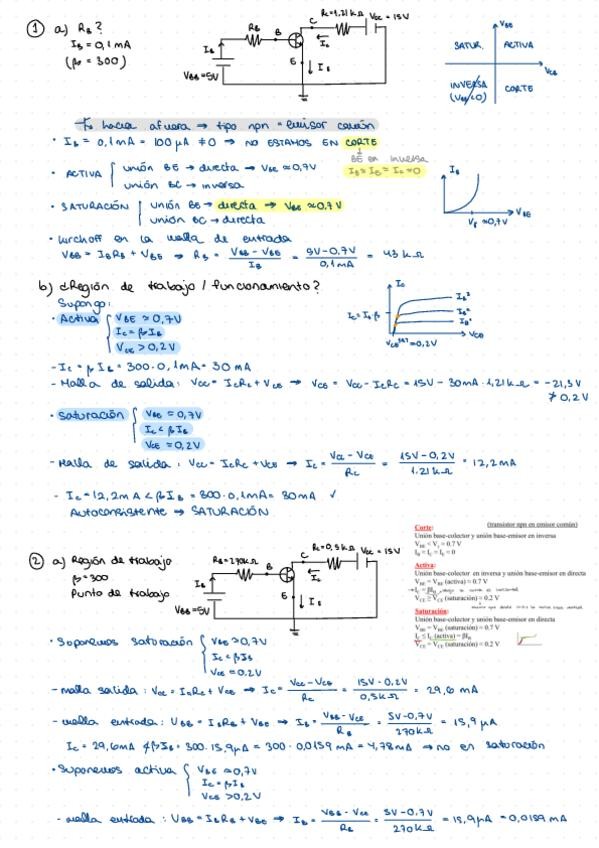 ① a) RB?
IB = 0,1 mA
(β = 300)
RC=1,21 kΩ VCC = 15V
RB B C E
IB IC IE
VBB = 5V
VBE
SATUR. ACTIVA
VCB
INVERSA CORTE
(VBB<0)
hacia afuera → tipo npn = emisor común
· IB = 0,1mA = 100 μA ≠ 0 → NO ESTAMOS EN CORTE
BE en inversa
IB = IE = IC = 0
· ACTIVA { unión BE → directa → VBE ≈ 0,7V
unión BC → inversa
· SATURACIÓN { unión BE → directa → VBE ≈ 0,7V
unión BC → directa
IB
VBE
Vγ ≈ 0,7V
· Kirchoff en la malla de entrada
VBB = IB RB + VBE → RB = (VBB - VBE) / IB = (5V - 0,7V) / 0,1mA = 43 kΩ
b) ¿Región de trabajo / funcionamiento?
Supongo:
· Activa { VBE ≈ 0,7V
IC = βIB
VCE > 0,2V
IC
IC = IB β
IB3
IB2
IB1
VCE
VCE sat = 0,2V
- IC = β IB = 300·0,1mA = 30 mA
- Malla de salida: VCC = ICRC + VCE → VCE = VCC - ICRC = 15V - 30mA·1,21kΩ = -21,3V
≯ 0,2V
· Saturación { VBE ≈ 0,7V
IC < βIB
VCE ≈ 0,2V
- Malla de salida: VCC = ICRC + VCE → IC = (VCC - VCE) / RC = (15V - 0,2V) / 1.21 kΩ = 12,2mA
- IC = 12,2mA < βIB = 300·0,1mA = 30mA ✓
Autoconsistente → SATURACIÓN
② a) Región de trabajo
β = 300
Punto de trabajo
RB = 270kΩ B C RC=0,5kΩ VCC = 15V
IB IC E IE
VBB = 5V
Corte: (transistor npn en emisor común)
Unión base-colector y unión base-emisor en inversa
VBE < Vγ = 0.7 V
IB = IC = IE = 0
Activa:
Unión base-colector en inversa y unión base-emisor en directa
VBE = VBE (activa) = 0.7 V
→ IC = βIB
VCE ≥ VCE (saturación) = 0.2 V
Saturación:
Unión base-colector y unión base-emisor en directa
VBE = VBE (saturación) = 0.7 V
IC ≤ IC (activa) = βIB
VCE = VCE (saturación) = 0.2 V
· Suponemos saturación { VBE > 0,7V
IC < βIB
VCE = 0.2V
- malla salida: VCC = ICRC + VCE → IC = (VCC - VCE) / RC = (15V - 0.2V) / 0,5kΩ = 29,6 mA
- malla entrada: VBB = IBRB + VBE → IB = (VBB - VBE) / RB = (5V - 0,7V) / 270kΩ = 15,9 μA
IC = 29,6mA ≮ βIB = 300·15,9μA = 300·0,0159 mA = 4,78mA → no en saturación
· Suponemos activa { VBE ≈ 0,7V
IC = βIB
VCE > 0,2V
- malla entrada: VBB = IBRB + VBE → IB = (VBB - VBE) / RB = (5V - 0,7V) / 270kΩ = 15,9μA = 0,0159 mA